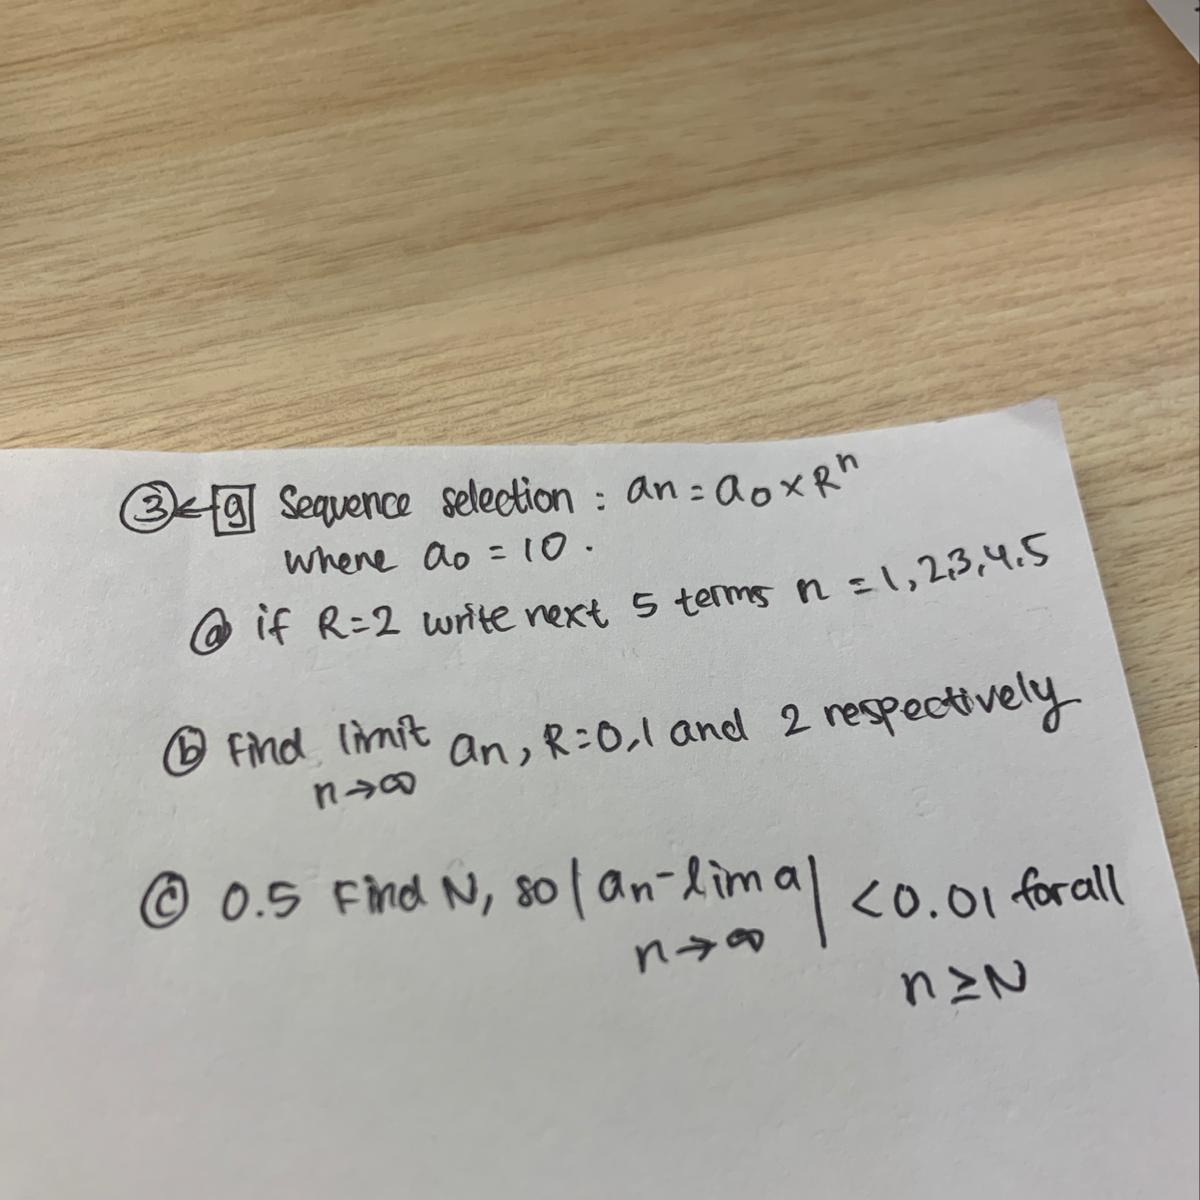 ③← 9 Sequence selection : an = a₀ × Rⁿ
where a₀ = 10 .
ⓐ if R=2 write next 5 terms n = 1,2,3,4,5
ⓑ Find limit an, R=0,1 and 2 respectively
n→∞
ⓒ 0.5 Find N, so | an - lim a | < 0.01 for all
n→∞
n ≥ N